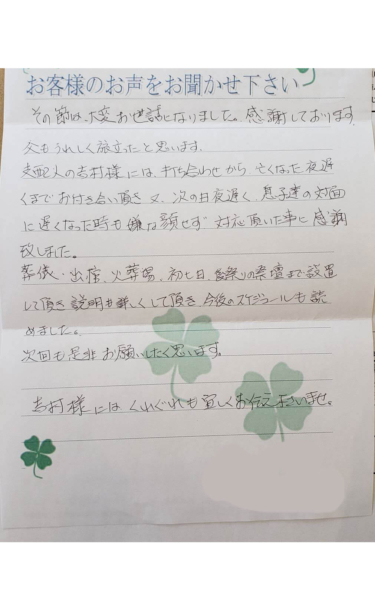 お客様のお声をお聞かせ下さい
その節は、大変お世話になりました。感謝しております。
父もうれしく旅立ったと思います。
支配人の志村様には、打ち合わせから亡くなった夜遅
くまでお付き合い頂き又、次の日夜遅く、息子達の対面
に遅くなった時も嫌な顔せず対応頂いた事に感謝
致しました。
葬儀・出棺、火葬場、初七日、後祭りの祭壇まで設置
して頂き説明も詳しくして頂き今後のスケジュールも読
めました。
次回も是非お願いしたく思います。
志村様にはくれぐれも宜しくお伝え下さいませ。